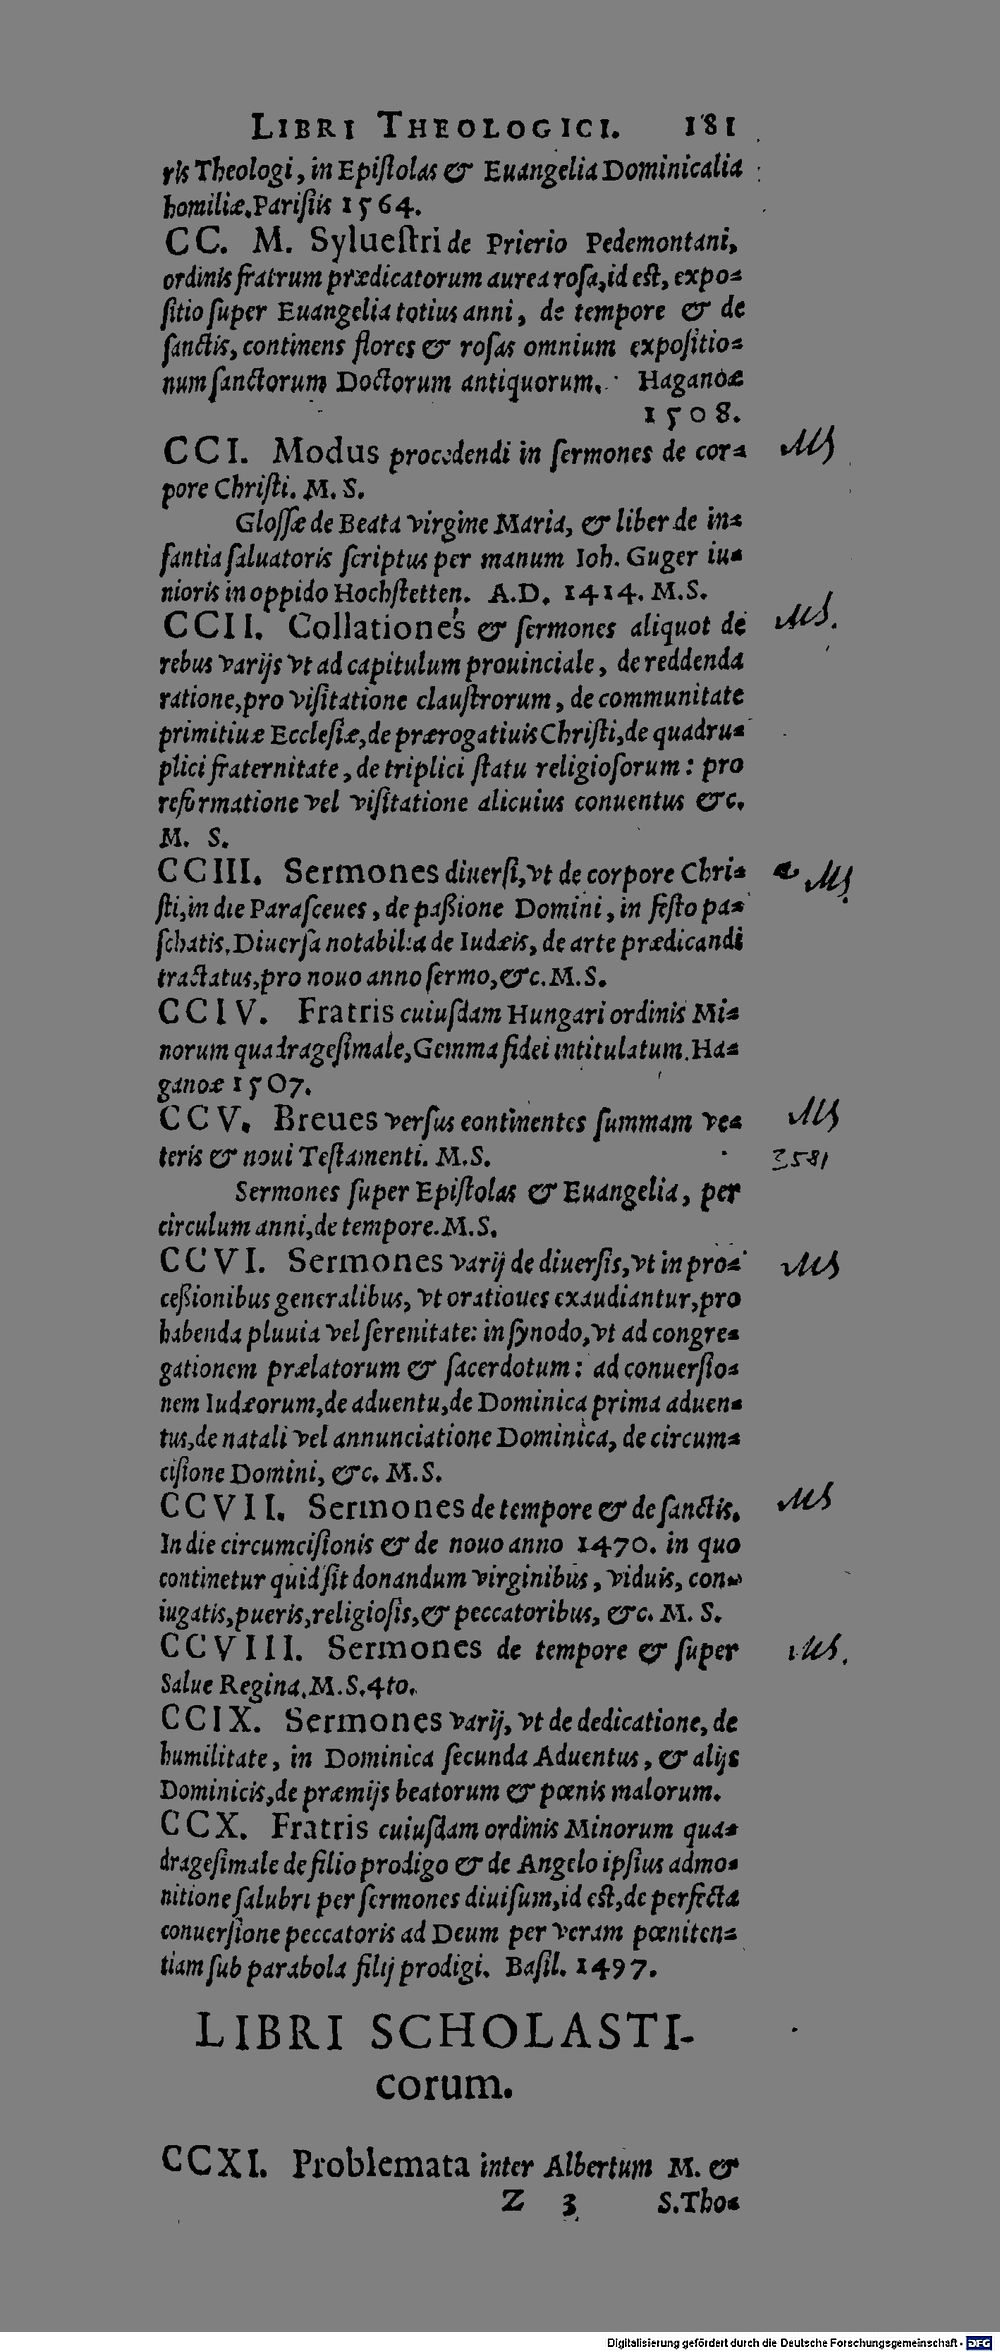 LIBRI THEOLOGICI. 181
ris Theologi, in Epiſtolas & Euangelia Dominicalia
homiliæ. Pariſiis 1564.
CC. M. Sylueſtri de Prierio Pedemontani,
ordinis fratrum prædicatorum aurea roſa, id eſt, expo-
ſitio ſuper Euangelia totius anni, de tempore & de
ſanctis, continens flores & roſas omnium expoſitio-
num ſanctorum Doctorum antiquorum. Haganoæ
1508.
CCI. Modus procedendi in ſermones de cor- MS
pore Chriſti. M. S.
Gloſſæ de Beata virgine Maria, & liber de in-
fantia ſaluatoris ſcriptus per manum Ioh. Guger iu-
nioris in oppido Hochſtetten. A.D. 1414. M.S.
CCII. Collationes & ſermones aliquot de MS.
rebus varijs vt ad capitulum prouinciale, de reddenda
ratione, pro viſitatione clauſtrorum, de communitate
primitiuæ Eccleſiæ, de prærogatiuis Chriſti, de quadru-
plici fraternitate, de triplici ſtatu religioſorum: pro
reformatione vel viſitatione alicuius conuentus &c.
M. S.
CCIII. Sermones diuerſi, vt de corpore Chri- MS.
ſti, in die Paraſceues, de paßione Domini, in feſto pa-
ſchatis. Diuerſa notabilia de Iudæis, de arte prædicandi
tractatus, pro nouo anno ſermo, &c. M.S.
CCIV. Fratris cuiuſdam Hungari ordinis Mi-
norum quadrageſimale, Gemma fidei intitulatum. Ha-
ganoæ 1507.
CCV. Breues verſus continentes ſummam ve- MS
teris & noui Teſtamenti. M.S. 3581
Sermones ſuper Epiſtolas & Euangelia, per
circulum anni, de tempore. M.S.
CCVI. Sermones varij de diuerſis, vt in pro- MS
ceßionibus generalibus, vt orationes exaudiantur, pro
habenda pluuia vel ſerenitate: in ſynodo, vt ad congre-
gationem prælatorum & ſacerdotum: ad conuerſio-
nem Iudæorum, de aduentu, de Dominica prima aduen-
tus, de natali vel annunciatione Dominica, de circum-
ciſione Domini, &c. M.S.
CCVII. Sermones de tempore & de ſanctis. MS
In die circumciſionis & de nouo anno 1470. in quo
continetur quid ſit donandum virginibus, viduis, con-
iugatis, pueris, religioſis, & peccatoribus, &c. M. S.
CCVIII. Sermones de tempore & ſuper MS.
Salue Regina. M.S. 4to.
CCIX. Sermones varij, vt de dedicatione, de
humilitate, in Dominica ſecunda Aduentus, & alijs
Dominicis, de præmijs beatorum & pœnis malorum.
CCX. Fratris cuiuſdam ordinis Minorum qua-
drageſimale de filio prodigo & de Angelo ipſius admo-
nitione ſalubri per ſermones diuiſum, id eſt, de perfecta
conuerſione peccatoris ad Deum per veram pœniten-
tiam ſub parabola filij prodigi. Baſil. 1497.
LIBRI SCHOLASTI-
corum.
CCXI. Problemata inter Albertum M. &
Z 3 S. Tho-
Digitalisierung gefördert durch die Deutsche Forschungsgemeinschaft - DFG